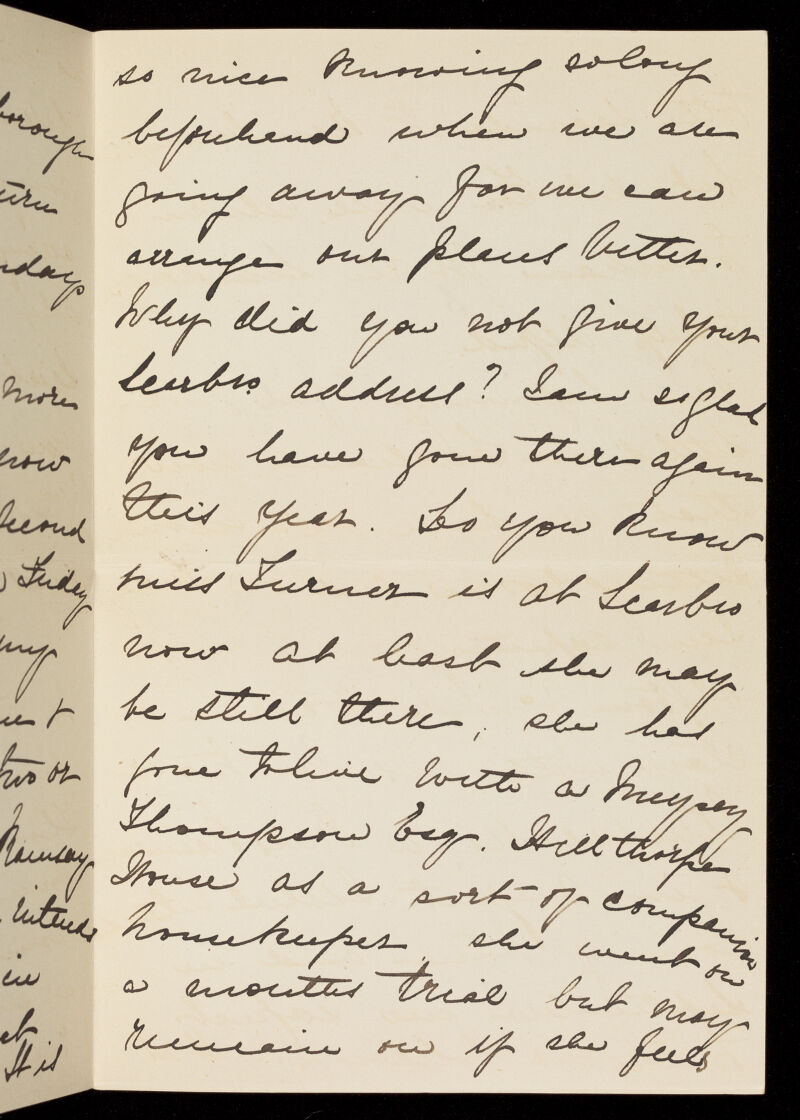 so nice knowing so long
beforehand when we are
going away for we can
arrange our plans better.
Why did you not give your
Scarbro address? I am so glad
you have gone there again
this year. Do you know
Miss Turner is at Scarbro
now at least she may
be still there, she has
gone to live with a Meysey
Thompson Esq. Hillthorpe
House as a sort of companion
housekeeper, she went on
a months trial but may
remain on if she feels
more
now
second
Friday
my
two or
Ramsay
intends
in
It is